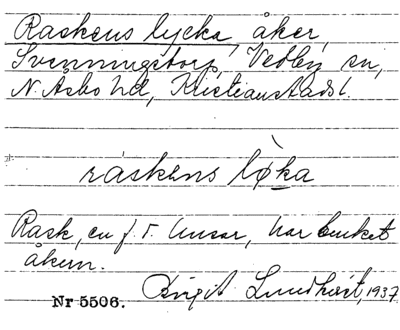 Raskens lycka, åker,
Svenningstorp, Vedby sn,
N. Åsbo hd, Kristianstads l.
ráskens lø̀ka
Rask, en f. d. husar, har brukat
åkern.
Birgit Lundkvist, 1937
Nr 5506.